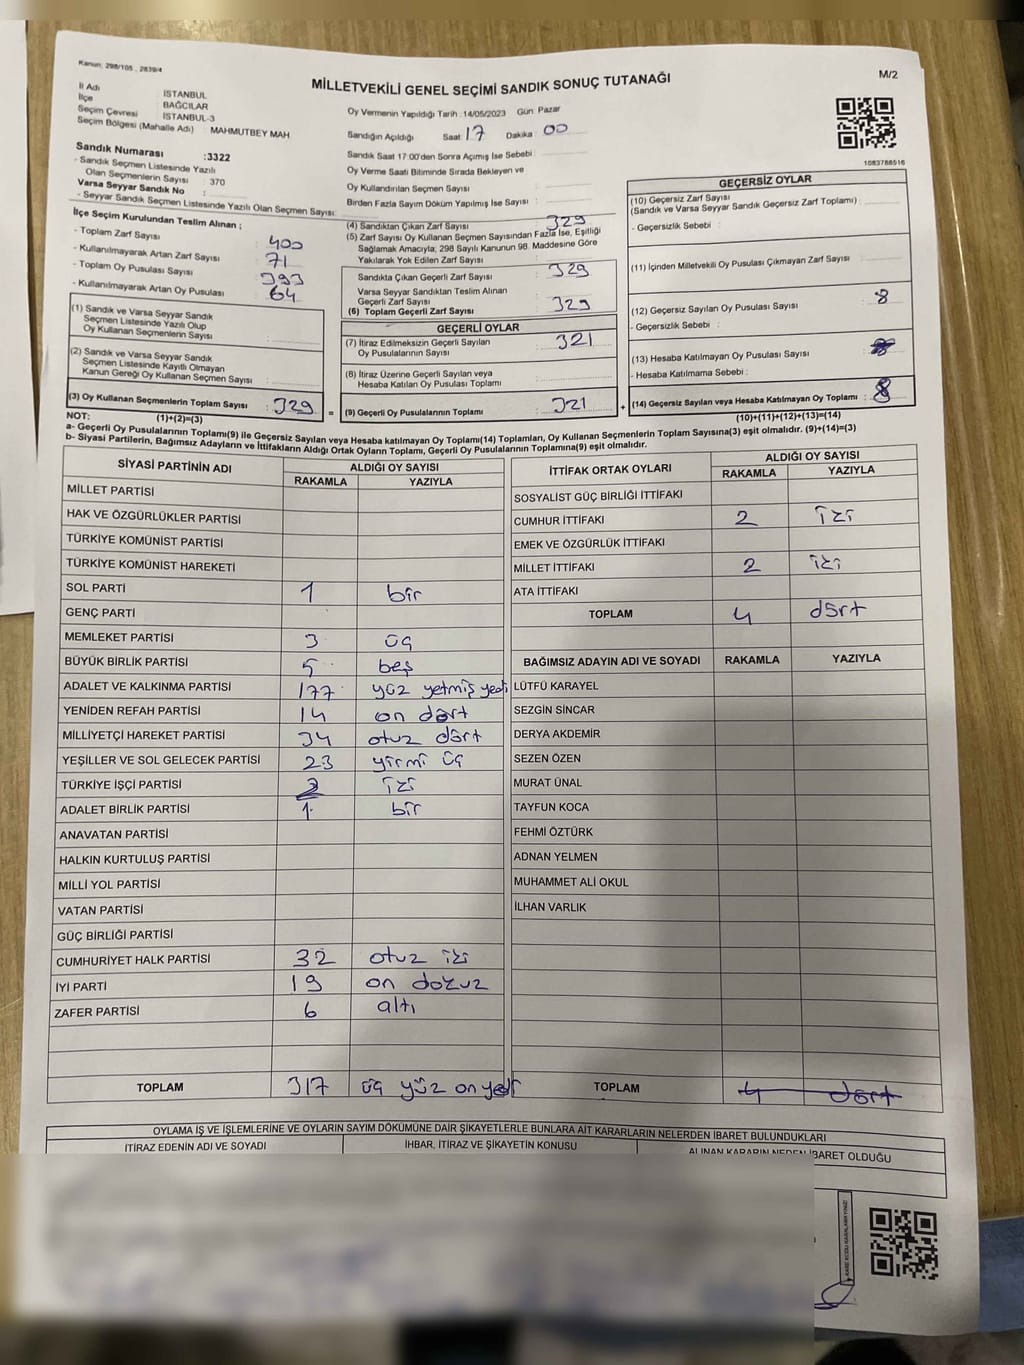 Kanun: 298/105 , 2839/4
MİLLETVEKİLİ GENEL SEÇİMİ SANDIK SONUÇ TUTANAĞI
M/2
İl Adı : İSTANBUL
İlçe : BAĞCILAR
Seçim Çevresi : İSTANBUL-3
Seçim Bölgesi (Mahalle Adı) : MAHMUTBEY MAH.
Oy Vermenin Yapıldığı Tarih :14/05/2023 Gün: Pazar
Sandığın Açıldığı Saat :17 Dakika : 00
Sandık Saat 17:00'den Sonra Açımış İse Sebebi :
Oy Verme Saati Bitiminde Sırada Bekleyen ve
Oy Kullandırılan Seçmen Sayısı :
Birden Fazla Sayım Döküm Yapılmış İse Sayısı :
1083788516
Sandık Numarası :3322
- Sandık Seçmen Listesinde Yazılı
Olan Seçmenlerin Sayısı : 370
Varsa Seyyar Sandık No :
- Seyyar Sandık Seçmen Listesinde Yazılı Olan Seçmen Sayısı:
İlçe Seçim Kurulundan Teslim Alınan ;
- Toplam Zarf Sayısı : 400
- Kullanılmayarak Artan Zarf Sayısı : 71
- Toplam Oy Pusulası Sayısı : 393
- Kullanılmayarak Artan Oy Pusulası : 64
(1) Sandık ve Varsa Seyyar Sandık
Seçmen Listesinde Yazılı Olup
Oy Kullanan Seçmenlerin Sayısı :
(2) Sandık ve Varsa Seyyar Sandık
Seçmen Listesinde Kayıtlı Olmayan
Kanun Gereği Oy Kullanan Seçmen Sayısı :
(3) Oy Kullanan Seçmenlerin Toplam Sayısı : 329 =
(1)+(2)=(3)
(4) Sandıktan Çıkan Zarf Sayısı : 329
(5) Zarf Sayısı Oy Kullanan Seçmen Sayısından Fazla İse, Eşitliği
Sağlamak Amacıyla, 298 Sayılı Kanunun 98. Maddesine Göre
Yakılarak Yok Edilen Zarf Sayısı :
Sandıkta Çıkan Geçerli Zarf Sayısı : 329
Varsa Seyyar Sandıktan Teslim Alınan
Geçerli Zarf Sayısı :
(6) Toplam Geçerli Zarf Sayısı : 329
GEÇERLİ OYLAR
(7) İtiraz Edilmeksizin Geçerli Sayılan
Oy Pusulalarının Sayısı : 321
(8) İtiraz Üzerine Geçerli Sayılan veya
Hesaba Katılan Oy Pusulası Toplamı :
(9) Geçerli Oy Pusulalarının Toplamı : 321 +
GEÇERSİZ OYLAR
(10) Geçersiz Zarf Sayısı
(Sandık ve Varsa Seyyar Sandık Geçersiz Zarf Toplamı) :
- Geçersizlik Sebebi :
(11) İçinden Milletvekili Oy Pusulası Çıkmayan Zarf Sayısı :
(12) Geçersiz Sayılan Oy Pusulası Sayısı : 8
- Geçersizlik Sebebi :
(13) Hesaba Katılmayan Oy Pusulası Sayısı :
- Hesaba Katılmama Sebebi :
(14) Geçersiz Sayılan veya Hesaba Katılmayan Oy Toplamı : 8
(10)+(11)+(12)+(13)=(14)
NOT:
a- Geçerli Oy Pusulalarının Toplamı(9) ile Geçersiz Sayılan veya Hesaba katılmayan Oy Toplamı(14) Toplamları, Oy Kullanan Seçmenlerin Toplam Sayısına(3) eşit olmalıdır. (9)+(14)=(3)
b- Siyasi Partilerin, Bağımsız Adayların ve İttifakların Aldığı Ortak Oyların Toplamı, Geçerli Oy Pusulalarının Toplamına(9) eşit olmalıdır.
SİYASİ PARTİNİN ADI
ALDIĞI OY SAYISI
RAKAMLA YAZIYLA
MİLLET PARTİSİ
HAK VE ÖZGÜRLÜKLER PARTİSİ
TÜRKİYE KOMÜNİST PARTİSİ
TÜRKİYE KOMÜNİST HAREKETİ
SOL PARTİ 1 bir
GENÇ PARTİ
MEMLEKET PARTİSİ 3 üç
BÜYÜK BİRLİK PARTİSİ 5 beş
ADALET VE KALKINMA PARTİSİ 177 yüz yetmiş yedi
YENİDEN REFAH PARTİSİ 14 on dört
MİLLİYETÇİ HAREKET PARTİSİ 34 otuz dört
YEŞİLLER VE SOL GELECEK PARTİSİ 23 yirmi üç
TÜRKİYE İŞÇİ PARTİSİ 2 iki
ADALET BİRLİK PARTİSİ 1 bir
ANAVATAN PARTİSİ
HALKIN KURTULUŞ PARTİSİ
MİLLİ YOL PARTİSİ
VATAN PARTİSİ
GÜÇ BİRLİĞİ PARTİSİ
CUMHURİYET HALK PARTİSİ 32 otuz iki
İYİ PARTİ 19 on dokuz
ZAFER PARTİSİ 6 altı
TOPLAM 317 üç yüz on yedi
İTTİFAK ORTAK OYLARI
ALDIĞI OY SAYISI
RAKAMLA YAZIYLA
SOSYALİST GÜÇ BİRLİĞİ İTTİFAKI
CUMHUR İTTİFAKI 2 iki
EMEK VE ÖZGÜRLÜK İTTİFAKI
MİLLET İTTİFAKI 2 iki
ATA İTTİFAKI
TOPLAM 4 dört
BAĞIMSIZ ADAYIN ADI VE SOYADI RAKAMLA YAZIYLA
LÜTFÜ KARAYEL
SEZGİN SİNCAR
DERYA AKDEMİR
SEZEN ÖZEN
MURAT ÜNAL
TAYFUN KOCA
FEHMİ ÖZTÜRK
ADNAN YELMEN
MUHAMMET ALİ OKUL
İLHAN VARLIK
TOPLAM 4 dört
OYLAMA İŞ VE İŞLEMLERİNE VE OYLARIN SAYIM DÖKÜMÜNE DAİR ŞİKAYETLERLE BUNLARA AİT KARARLARIN NELERDEN İBARET BULUNDUKLARI
İTİRAZ EDENİN ADI VE SOYADI İHBAR, İTİRAZ VE ŞİKAYETİN KONUSU ALINAN KARARIN NEDEN İBARET OLDUĞU